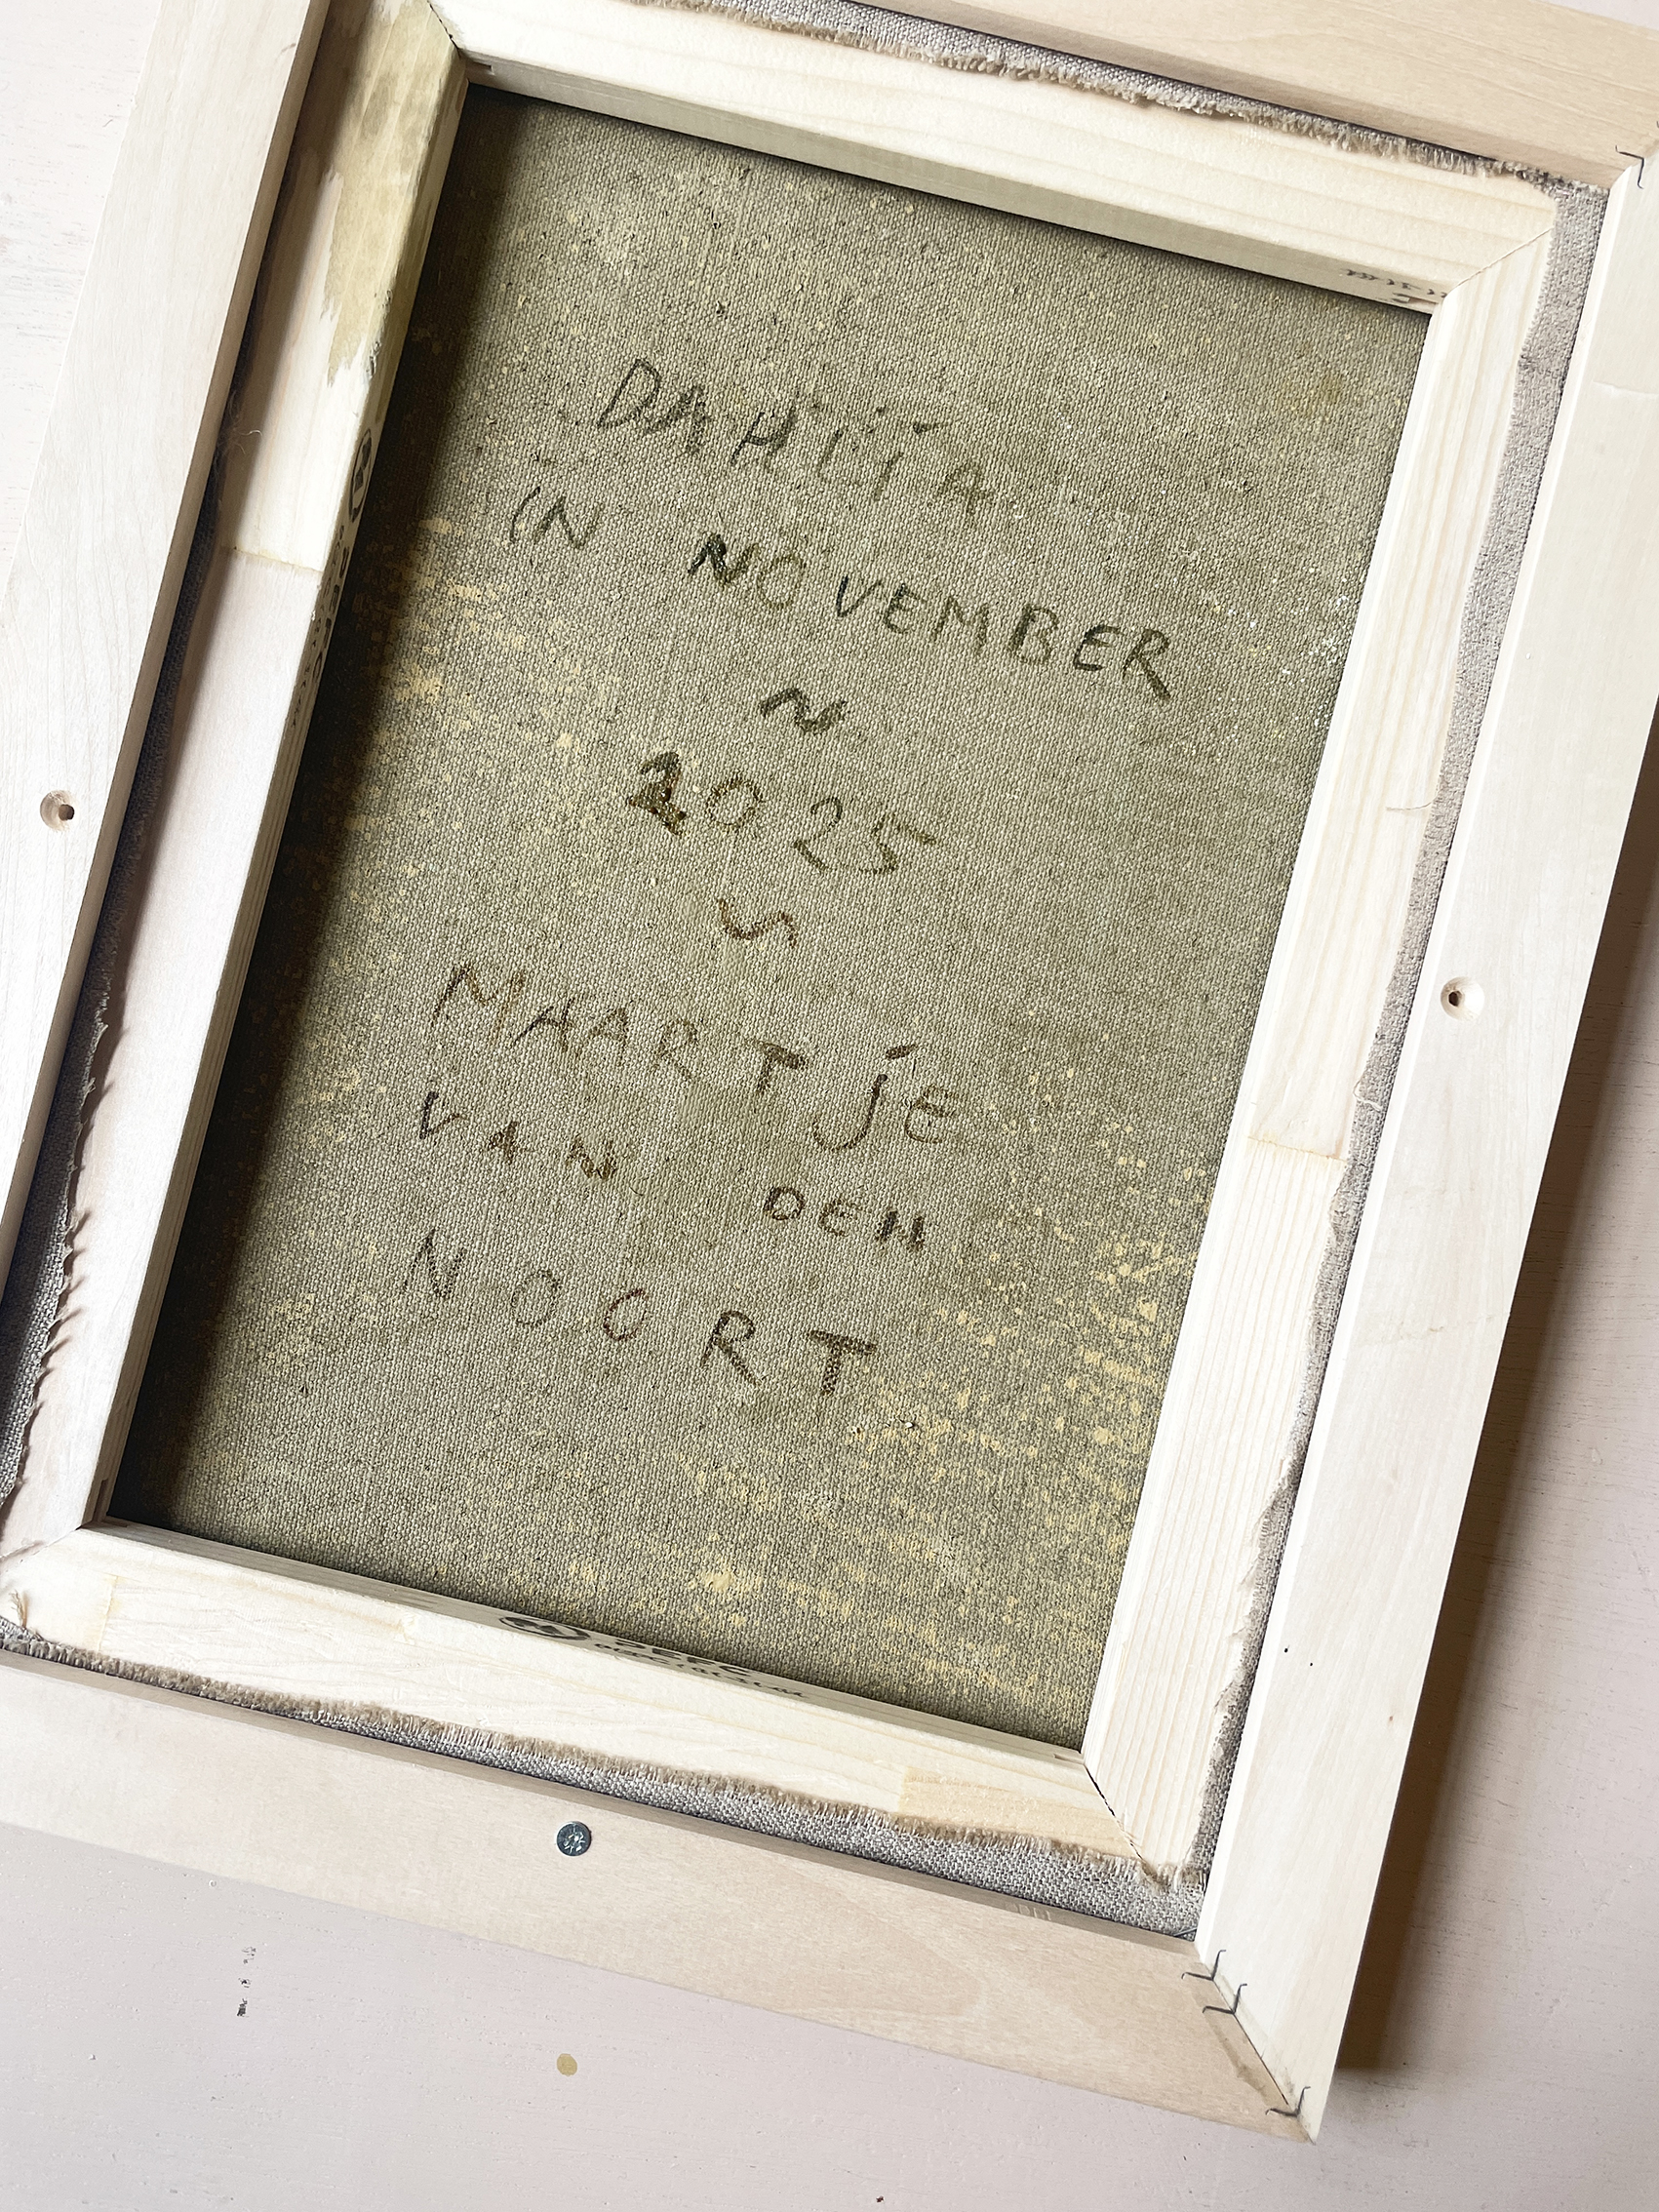 DAHLiA
iN NOVEMBER
~
2025
~
MAARTjE
VAN DEN
NOORT